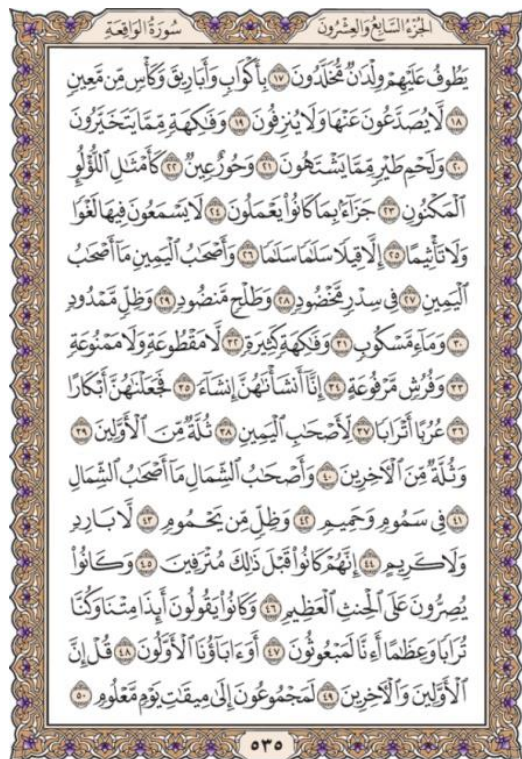 الجزء السابع والعشرون سورة الواقعة
يَطُوفُ عَلَيْهِمْ وِلْدَٰنٌ مُّخَلَّدُونَ ١٧ بِأَكْوَابٍ وَأَبَارِيقَ وَكَأْسٍ مِّن مَّعِينٍ
١٨ لَّا يُصَدَّعُونَ عَنْهَا وَلَا يُنزِفُونَ ١٩ وَفَٰكِهَةٍ مِّمَّا يَتَخَيَّرُونَ
٢٠ وَلَحْمِ طَيْرٍ مِّمَّا يَشْتَهُونَ ٢١ وَحُورٌ عِينٌ ٢٢ كَأَمْثَٰلِ اللُّؤْلُؤِ
الْمَكْنُونِ ٢٣ جَزَآءًۢ بِمَا كَانُوا۟ يَعْمَلُونَ ٢٤ لَا يَسْمَعُونَ فِيهَا لَغْوًا
وَلَا تَأْثِيمًا ٢٥ إِلَّا قِيلًا سَلَٰمًا سَلَٰمًا ٢٦ وَأَصْحَٰبُ الْيَمِينِ مَآ أَصْحَٰبُ
الْيَمِينِ ٢٧ فِى سِدْرٍ مَّخْضُودٍ ٢٨ وَطَلْحٍ مَّنضُودٍ ٢٩ وَظِلٍّ مَّمْدُودٍ
٣٠ وَمَآءٍ مَّسْكُوبٍ ٣١ وَفَٰكِهَةٍ كَثِيرَةٍ ٣٢ لَّا مَقْطُوعَةٍ وَلَا مَمْنُوعَةٍ
٣٣ وَفُرُشٍ مَّرْفُوعَةٍ ٣٤ إِنَّآ أَنشَأْنَٰهُنَّ إِنشَآءً ٣٥ فَجَعَلْنَٰهُنَّ أَبْكَارًا
٣٦ عُرُبًا أَتْرَابًا ٣٧ لِّأَصْحَٰبِ الْيَمِينِ ٣٨ ثُلَّةٌ مِّنَ الْأَوَّلِينَ ٣٩
وَثُلَّةٌ مِّنَ الْـَٔاخِرِينَ ٤٠ وَأَصْحَٰبُ الشِّمَالِ مَآ أَصْحَٰبُ الشِّمَالِ
٤١ فِى سَمُومٍ وَحَمِيمٍ ٤٢ وَظِلٍّ مِّن يَحْمُومٍ ٤٣ لَّا بَارِدٍ
وَلَا كَرِيمٍ ٤٤ إِنَّهُمْ كَانُوا۟ قَبْلَ ذَٰلِكَ مُتْرَفِينَ ٤٥ وَكَانُوا۟
يُصِرُّونَ عَلَى الْحِنثِ الْعَظِيمِ ٤٦ وَكَانُوا۟ يَقُولُونَ أَئِذَا مِتْنَا وَكُنَّا
تُرَابًا وَعِظَٰمًا أَءِنَّا لَمَبْعُوثُونَ ٤٧ أَوَءَابَآؤُنَا الْأَوَّلُونَ ٤٨ قُلْ إِنَّ
الْأَوَّلِينَ وَالْـَٔاخِرِينَ ٤٩ لَمَجْمُوعُونَ إِلَىٰ مِيقَٰتِ يَوْمٍ مَّعْلُومٍ ٥٠
٥٣٥